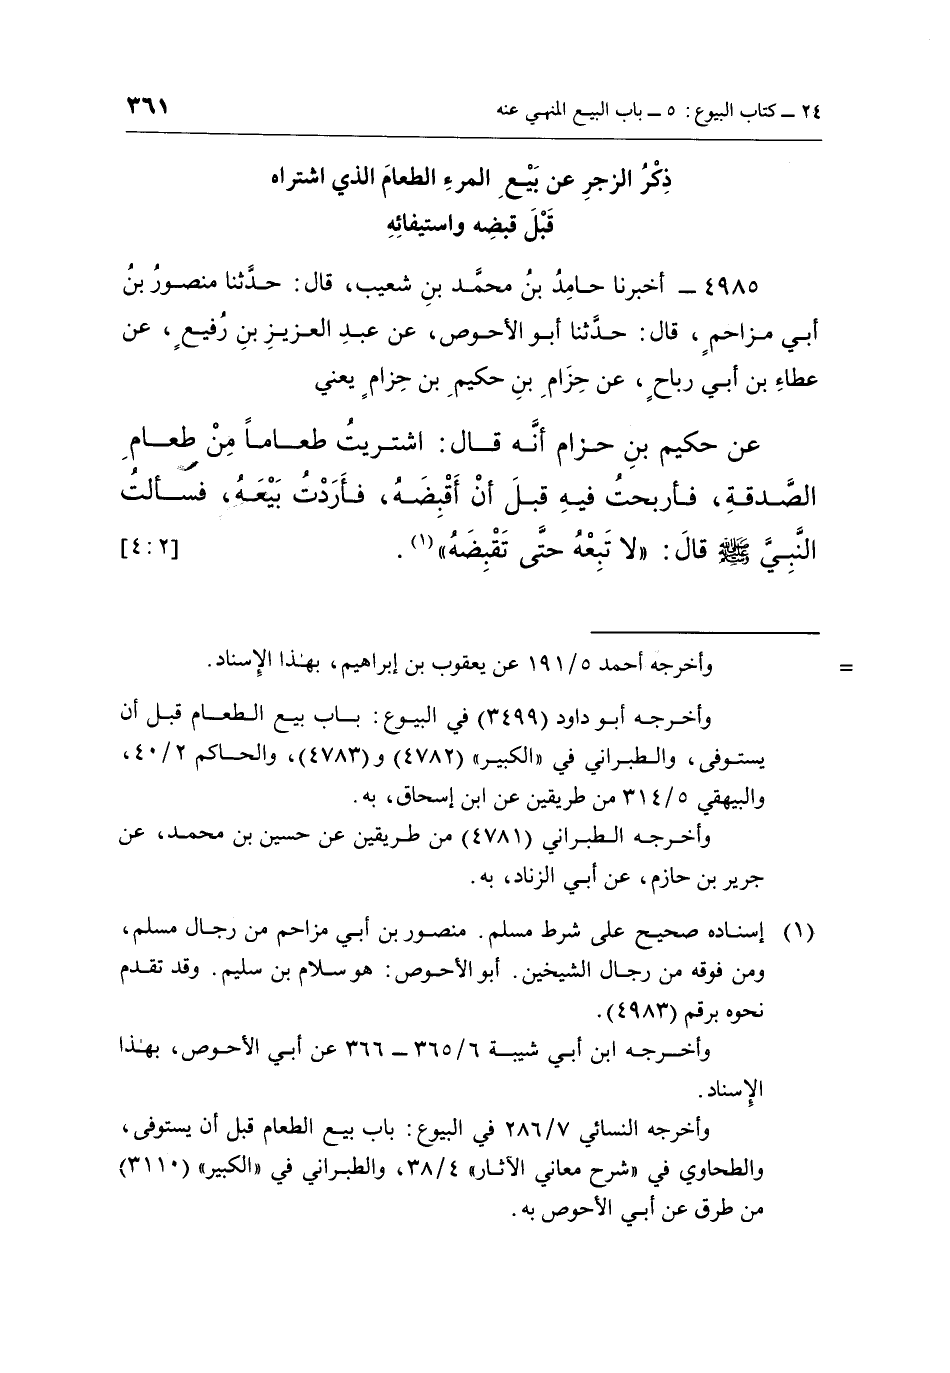 ٢٤ ـ كتاب البيوع: ٥ ـ باب البيع المنهي عنه ٣٦١
ذِكْرُ الزجرِ عن بَيْعِ المرءِ الطعامَ الذي اشتراه
قَبْلَ قبضِه واستيفائِهِ
٤٩٨٥ ـ أخبرنا حامِدُ بنُ محمَّد بنِ شعيب، قال: حدَّثنا منصورُ بنُ
أبي مزاحمٍ، قال: حدَّثنا أبو الأحوص، عن عبدِ العزيزِ بنِ رُفيعٍ، عن
عطاءِ بن أبي رباحٍ، عن حِزَامِ بنِ حكيمِ بن حِزامٍ يعني
عن حكيم بنِ حزام أنَّه قال: اشتريتُ طعاماً مِنْ طعامِ
الصَّدقةِ، فأربحتُ فيهِ قبلَ أنْ أَقْبِضَهُ، فأَرَدْتُ بَيْعَهُ، فسألتُ
النَّبِيَّ ﷺ قالَ: «لا تَبِعْهُ حتَّى تَقْبِضَهُ»(١). [٢:٤]
= وأخرجه أحمد ١٩١/٥ عن يعقوب بن إبراهيم، بهٰذا الإِسناد.
وأخرجه أبو داود (٣٤٩٩) في البيوع: باب بيع الطعام قبل أن
يستوفى، والطبراني في «الكبير» (٤٧٨٢) و(٤٧٨٣)، والحاكم ٤٠/٢،
والبيهقي ٣١٤/٥ من طريقين عن ابن إسحاق، به.
وأخرجه الطبراني (٤٧٨١) من طريقين عن حسين بن محمد، عن
جرير بن حازم، عن أبي الزناد، به.
(١) إسناده صحيح على شرط مسلم. منصور بن أبي مزاحم من رجال مسلم،
ومن فوقه من رجال الشيخين. أبو الأحوص: هو سلام بن سليم. وقد تقدم
نحوه برقم (٤٩٨٣).
وأخرجه ابن أبي شيبة ٣٦٥/٦ ـ ٣٦٦ عن أبي الأحوص، بهٰذا
الإِسناد.
وأخرجه النسائي ٢٨٦/٧ في البيوع: باب بيع الطعام قبل أن يستوفى،
والطحاوي في «شرح معاني الآثار» ٣٨/٤، والطبراني في «الكبير» (٣١١٠)
من طرق عن أبي الأحوص به.